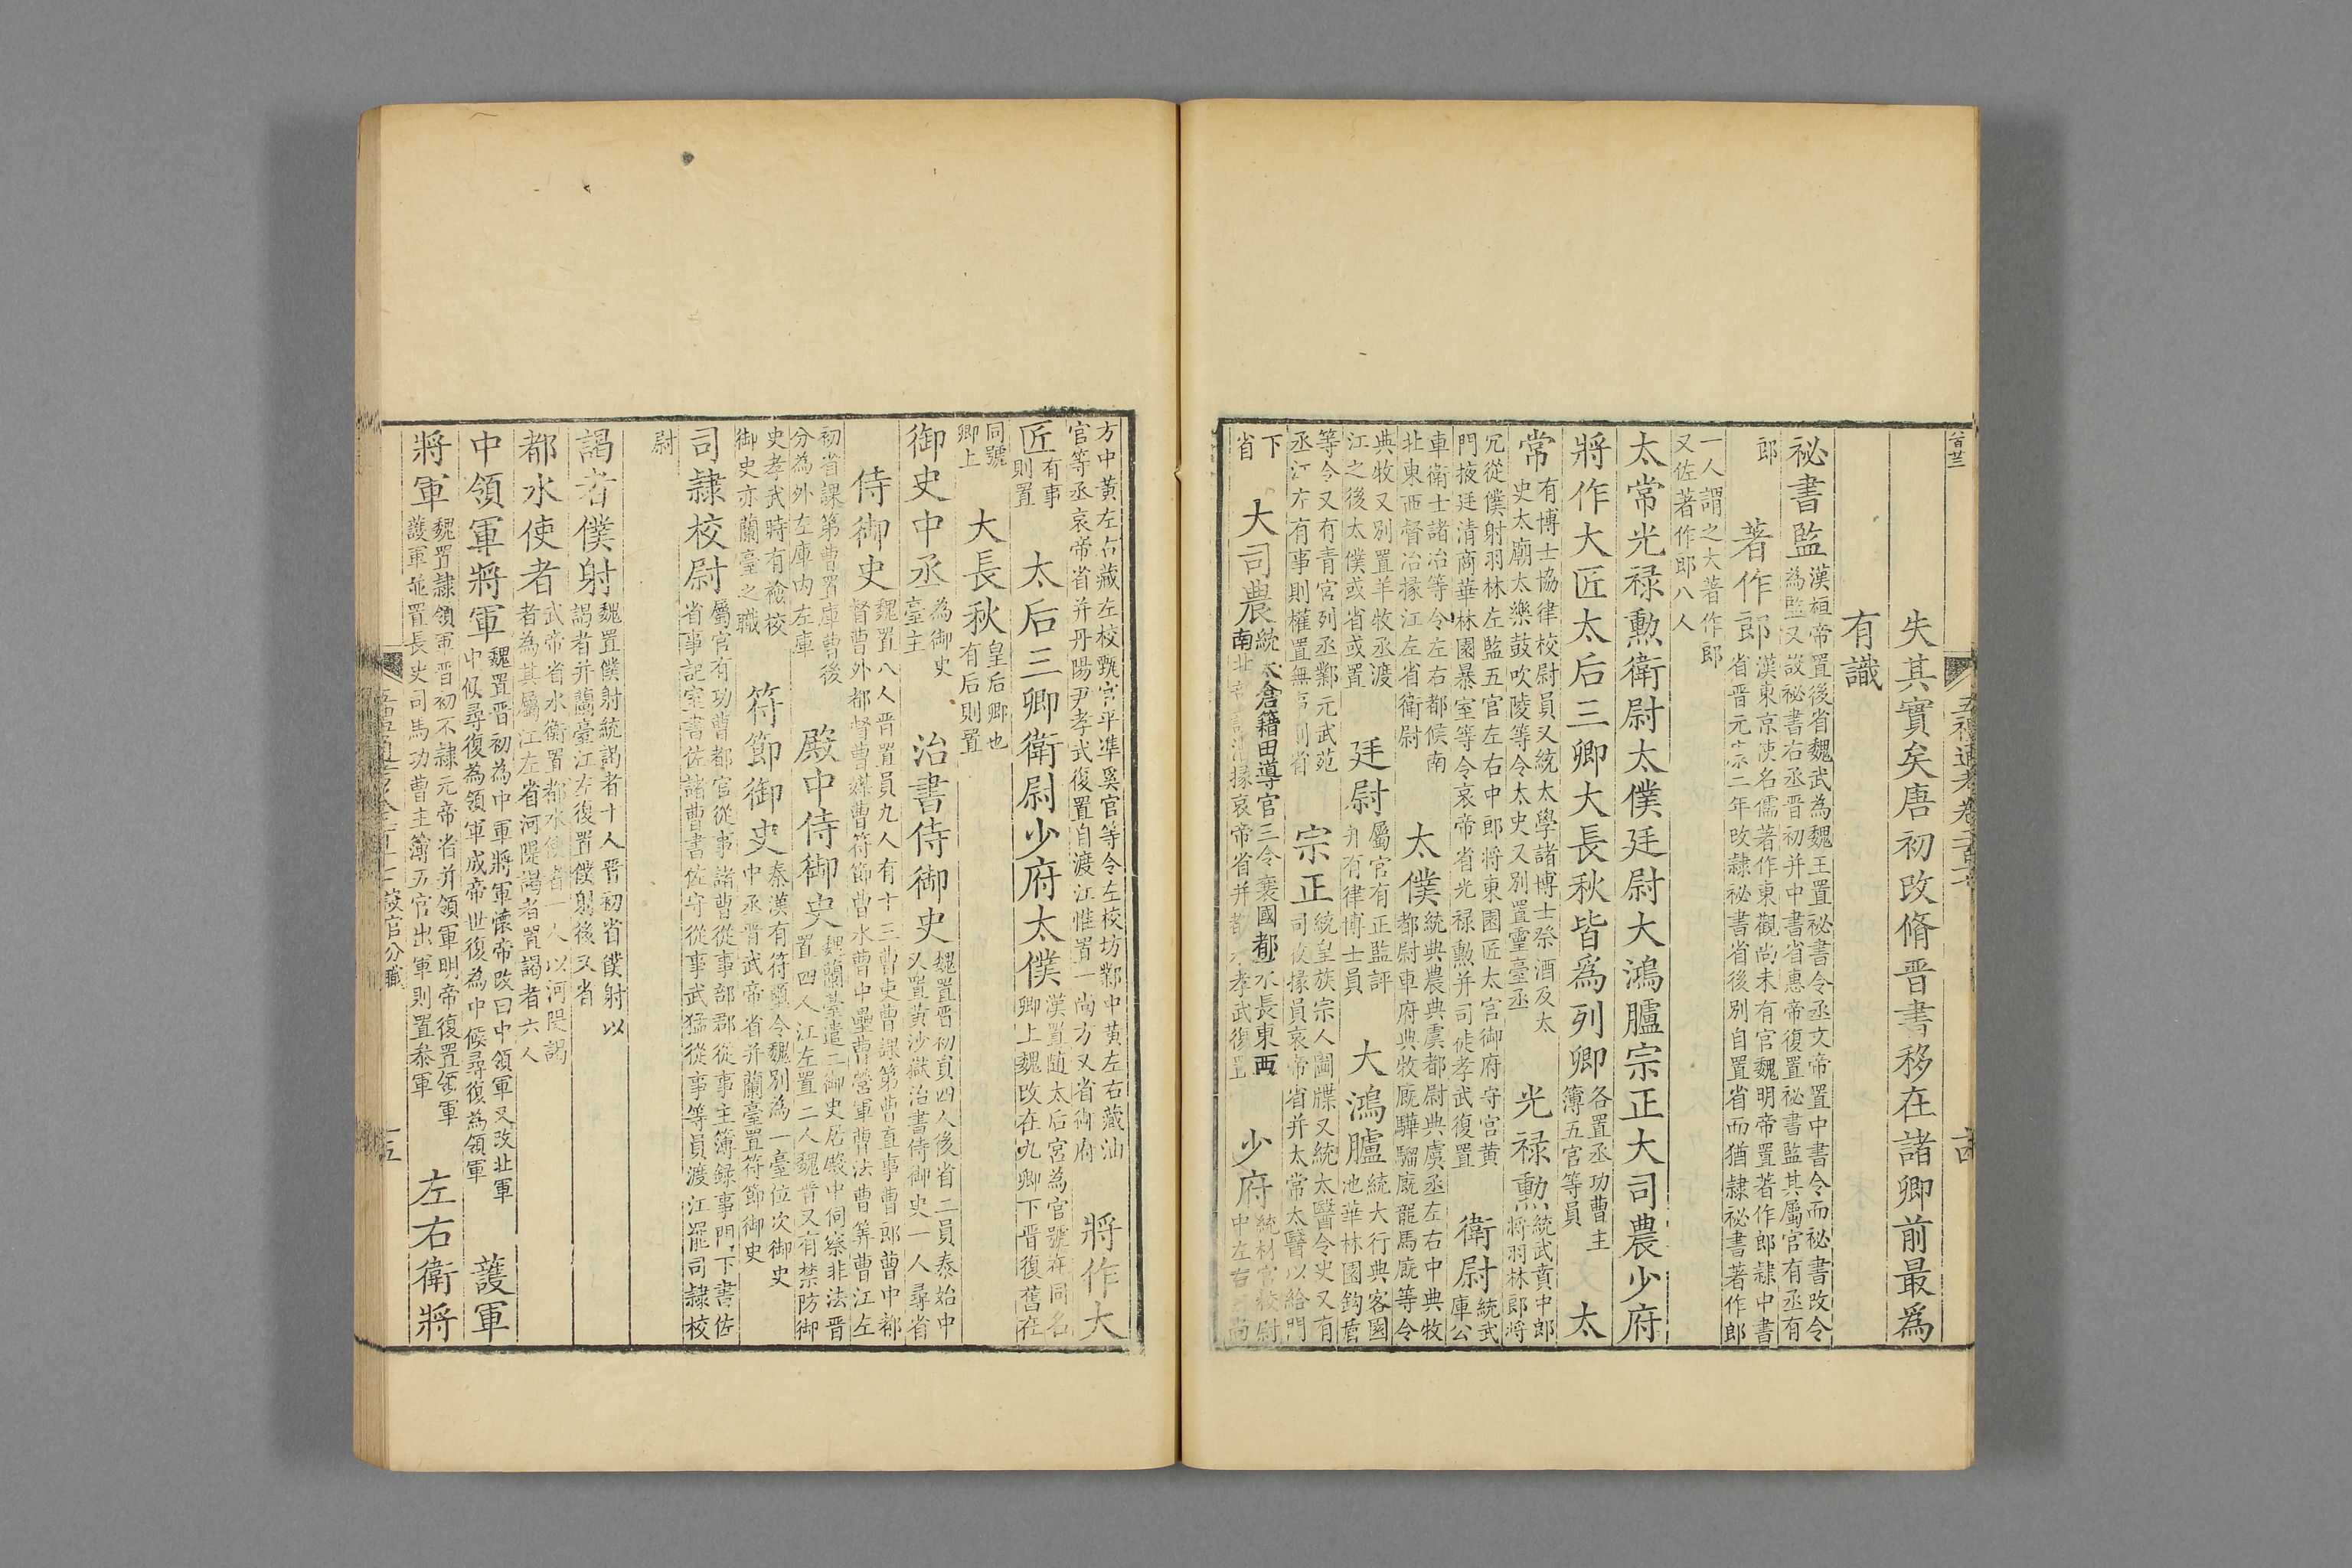 五禮通考卷二百十七
失其實矣唐初改脩晉書移在諸卿前最爲
有識
秘書監漢桓帝置後省魏武為魏王置祕書令丞文帝置中書令而祕書改令
為監又設祕書右丞晉初并中書省惠帝復置祕書監其屬官有丞有
郎
著作郎漢東京使名儒著作東觀尚未有官魏明帝置著作郎隸中書
省晉元康二年改隸祕書省後別自置省而猶隸祕書著作郎
一人謂之大著作郎
又佐著作郎八人
太常光禄勲衛尉太僕廷尉大鴻臚宗正大司農少府
將作大匠太后三卿大長秋皆爲列卿各置丞功曹主
簿五官等員
太
常有博士協律校尉員又統太學諸博士祭酒及太
史太廟太樂鼓吹陵等令太史又別置靈臺丞
光禄勲統武賁中郎
將羽林郎將
冗從僕射羽林左監五官左右中郎將東園匠太官御府守宮黄
門掖廷清商華林園暴室等令哀帝省光禄勲并司徒孝武復置
衛尉統武
庫公
車衛士諸冶等令左右都候南
北東西督冶掾江左省衛尉
太僕統典農典虞都尉典虞丞左右中典牧
都尉車府典牧廐驊騮廐龍馬廐等令
典牧又別置羊牧丞渡
江之後太僕或省或置
廷尉屬官有正監評
并有律博士員
大鴻臚統大行典客園
池華林園鈎盾
等令又有青宮列丞鄴元武苑
丞江左有事則權置無事則省
宗正統皇族宗人圖牒又統太醫令史又有
司牧掾員哀帝省并太常太醫以給門
下
省
大司農統太倉籍田導官三令襄國都水長東西
南北部護漕掾哀帝省并都水孝武復置
少府統材官校尉
中左右三尚
方中黄左右藏左校甄官平凖奚官等令左校坊鄴中黄左右藏油
官等丞哀帝省并丹陽尹孝武復置自渡江惟置一尚方又省御府
將作大
匠有事
則置
太后三卿衛尉少府太僕漢置随太后宮為官號在同名
卿上魏改在九卿下晉復舊在
同號
卿上
大長秋皇后卿也
有后則置
御史中丞為御史
臺主
治書侍御史魏置晉初員四人後省二員泰始中
又置黄沙獄治書侍御史一人尋省
侍御史魏置八人晉置員九人有十三曹吏曹課第曹直事曹郎曹中都
督曹外都督曹媒曹符節曹水曹中壘曹營軍曹法曹筭曹江左
初省課第曹置庫曹後
分為外左庫内左庫
殿中侍御史魏蘭臺遣二御史居殿中伺察非法晉
置四人江左置二人魏晉又有禁防御
史孝武時有檢校
御史亦蘭臺之職
符節御史秦漢有符璽令魏別為一臺位次御史
中丞晉武帝省并蘭臺置符節御史
司隸校尉屬官有功曹都官從事諸曹從事部郡從事主簿録事門下書佐
省事記室書佐諸曹書佐守從事武猛從事等員渡江罷司隸校
尉
謁者僕射魏置僕射統謁者十人晉初省僕射以
謁者并蘭臺江左復置僕射後又省
都水使者武帝省水衡置都水使者一人以河隄謁
者為其屬江左省河隄謁者置謁者六人
中領軍將軍魏置晉初為中軍將軍懷帝改曰中領軍又改北軍
中候尋復為領軍成帝世復為中候尋復為領軍
護軍
將軍魏置隸領軍晉初不隸元帝省并領軍明帝復置領軍
護軍並置長史司馬功曹主簿五官出軍則置叅軍
左右衛將
設官分職
十五